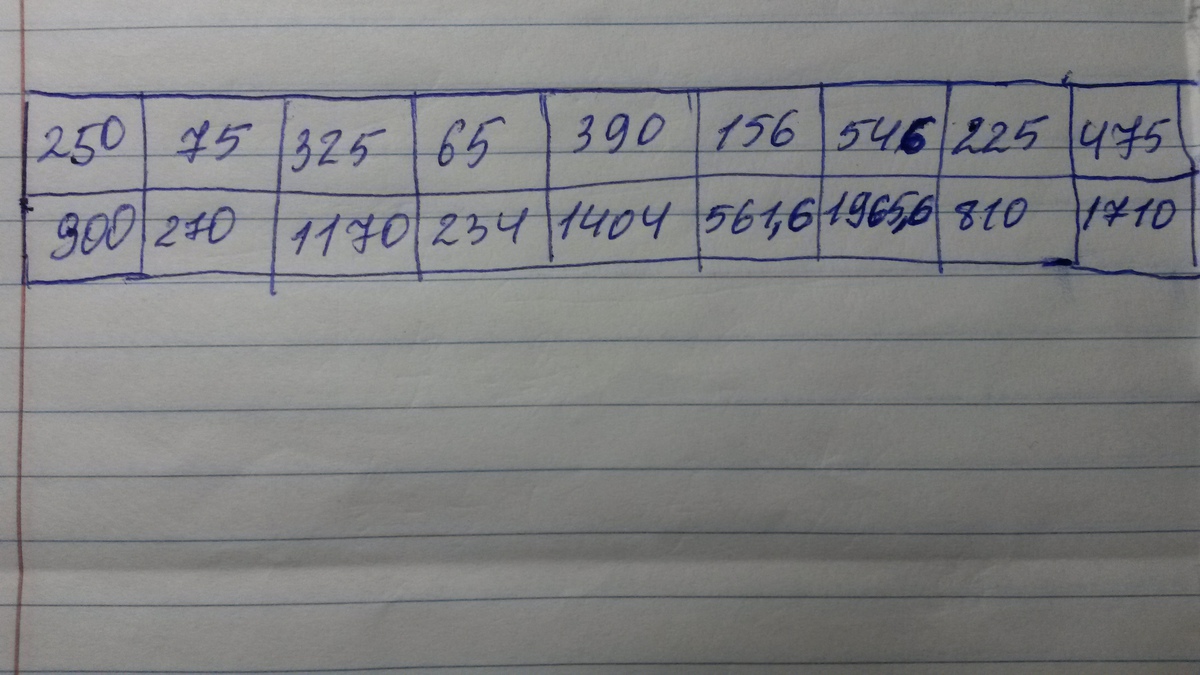 250 75 325 65 390 156 546 225 475
900 270 1170 234 1404 561,6 1965,6 810 1710